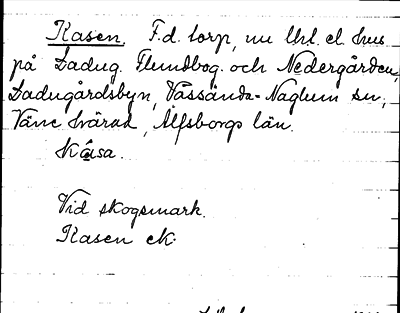 Kasen. F.d. torp, nu lht. el. hus
på Ladug. Flundbog. och Nedergården,
Ladugårdsbyn, Vassända-Naglum sn,
Väne härad, Älfsborgs län.
Kåsa.
Vid skogsmark.
Kasen ek.